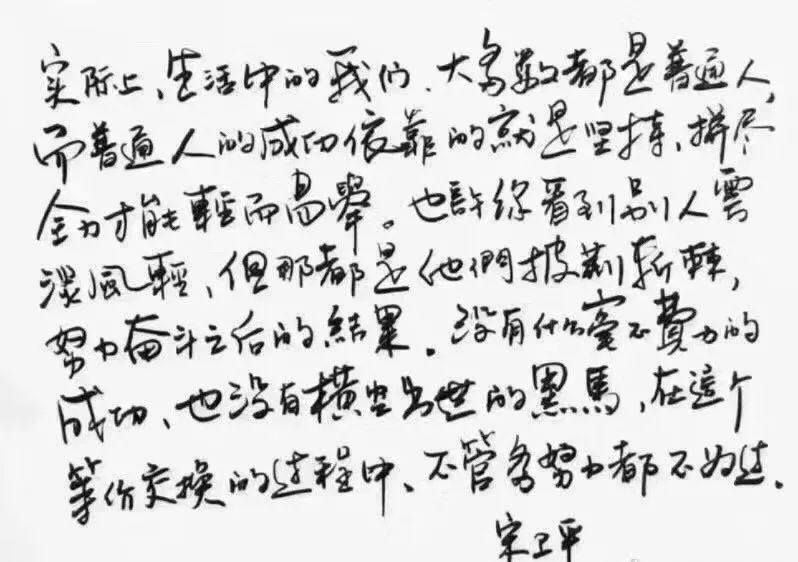 实际上,生活中的我们.大多数都是普通人,
而普通人的成功依靠的就是坚持、拼尽
全力才能輕而易舉。也許你看到别人雲
淡風輕,但那都是他們披荆斬棘,
努力奋斗之后的結果。没有什么毫不費力的
成功、也没有橫空出世的黑馬,在這个
等价交换的过程中、不管多努力都不为过.
宋卫平